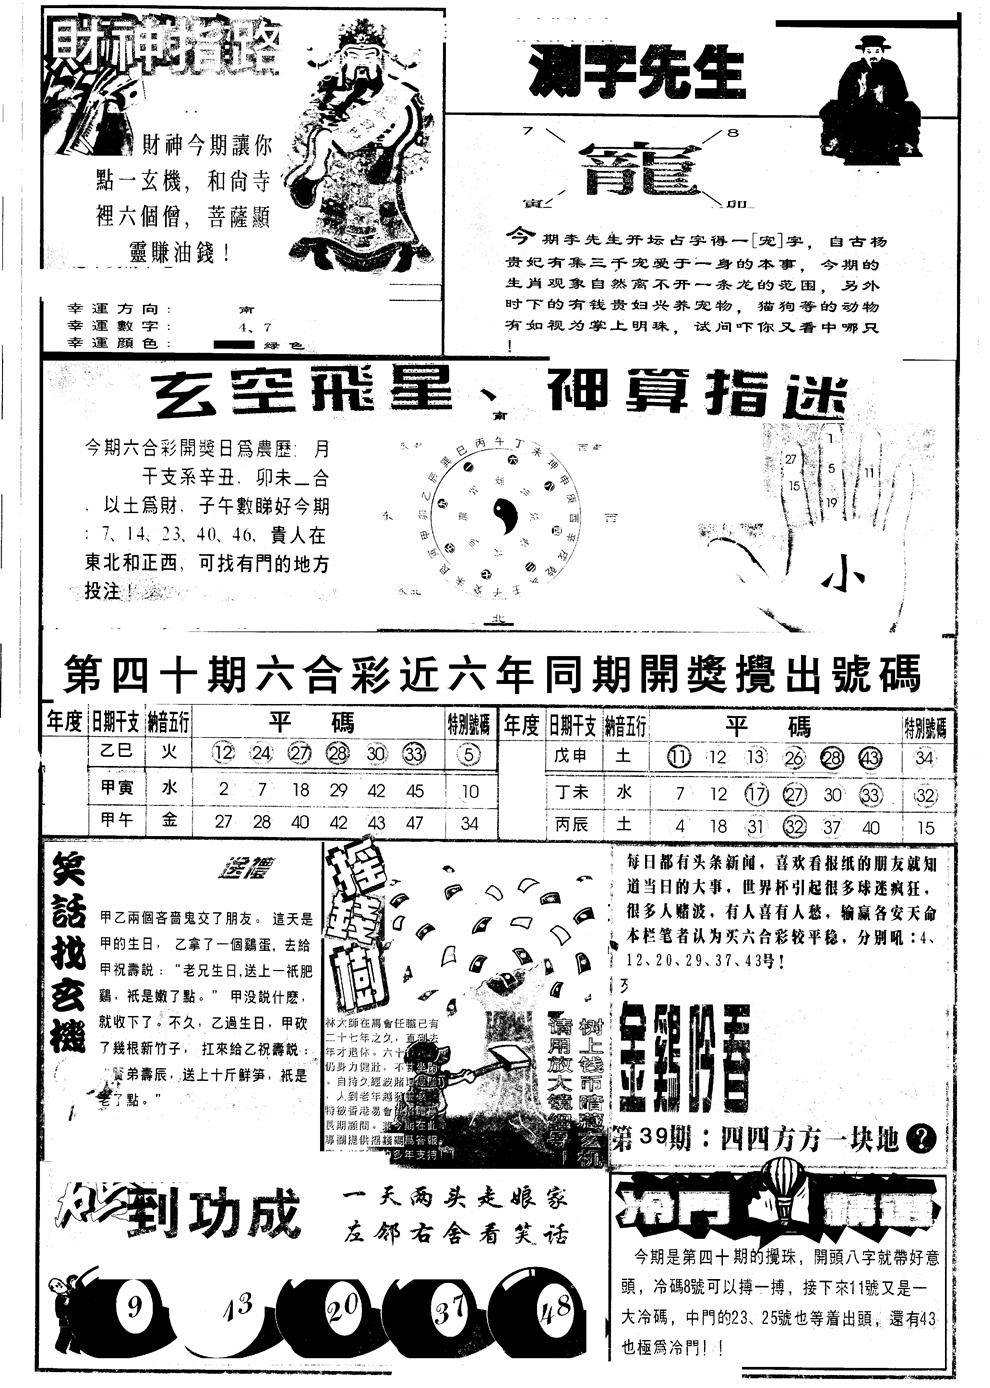 財神指路
財神今期讓你
點一玄機，和尙寺
裡六個僧，菩薩顯
靈賺油錢！
幸運方向： 南
幸運數字： 4、7
幸運顔色： 绿色
测字先生
7 8
寵
寅 卯
今期李先生开坛占字得一[宠]字，自古杨
贵妃有集三千宠爱于一身的本事，今期的
生肖观象自然离不开一条龙的范围，另外
时下的有钱贵妇兴养宠物，猫狗等的动物
有如视为掌上明珠，试问吓你又看中哪只
！
玄空飛星、神算指迷
今期六合彩開獎日爲農歷 月
干支系辛丑．卯未二合
．以土爲財．子午數睇好今期
：7、14、23、40、46、貴人在
東北和正西．可找有門的地方
投注！
南
北
1
27 5 11
15
19
小
第四十期六合彩近六年同期開獎攪出號碼
年度 日期干支 納音五行 平碼 特別號碼 年度 日期干支 納音五行 平碼 特別號碼
乙巳 火 12 24 27 28 30 33 5 戊申 土 11 12 13 26 28 43 34
甲寅 水 2 7 18 29 42 45 10 丁未 水 7 12 17 27 30 33 32
甲午 金 27 28 40 42 43 47 34 丙辰 土 4 18 31 32 37 40 15
笑話找玄機
送禮
甲乙兩個吝嗇鬼交了朋友。這天是
甲的生日，乙拿了一個鷄蛋，去給
甲祝壽説：“老兄生日，送上一衹肥
鷄，衹是嫩了點。”甲没説什麽，
就收下了。不久，乙過生日，甲砍
了幾根新竹子，扛來給乙祝壽説：
弟壽辰，送上十斤鮮笋，衹是
老了點。”
摇錢樹
林大師在馬會任職已有
二十七年之久，直到去
年才退休。六十
仍身力健壯，不
．自持久經政賭
．人到老年越
特被香港易會
長期顧問。 今期在此
專欄提供摇錢碼爲答報
多年支持
树上钱币暗藏玄机
请用放大镜细
每日都有头条新闻，喜欢看报纸的朋友就知
道当日的大事，世界杯引起很多球迷疯狂，
很多人赌波，有人喜有人愁，输赢各安天命
本栏笔者认为买六合彩较平稳，分别吼：4、
12、20、29、37、43号！
金鷄吟春
第39期：四四方方一块地?
到功成
一天两头走娘家
左邻右舍看笑话
9 13 20 37 48
冷門精選
今期是第四十期的攪珠，開頭八字就帶好意
頭，冷碼8號可以搏一搏，接下來11號又是一
大冷碼，中門的23、25號也等着出頭，還有43
也極爲冷門！！